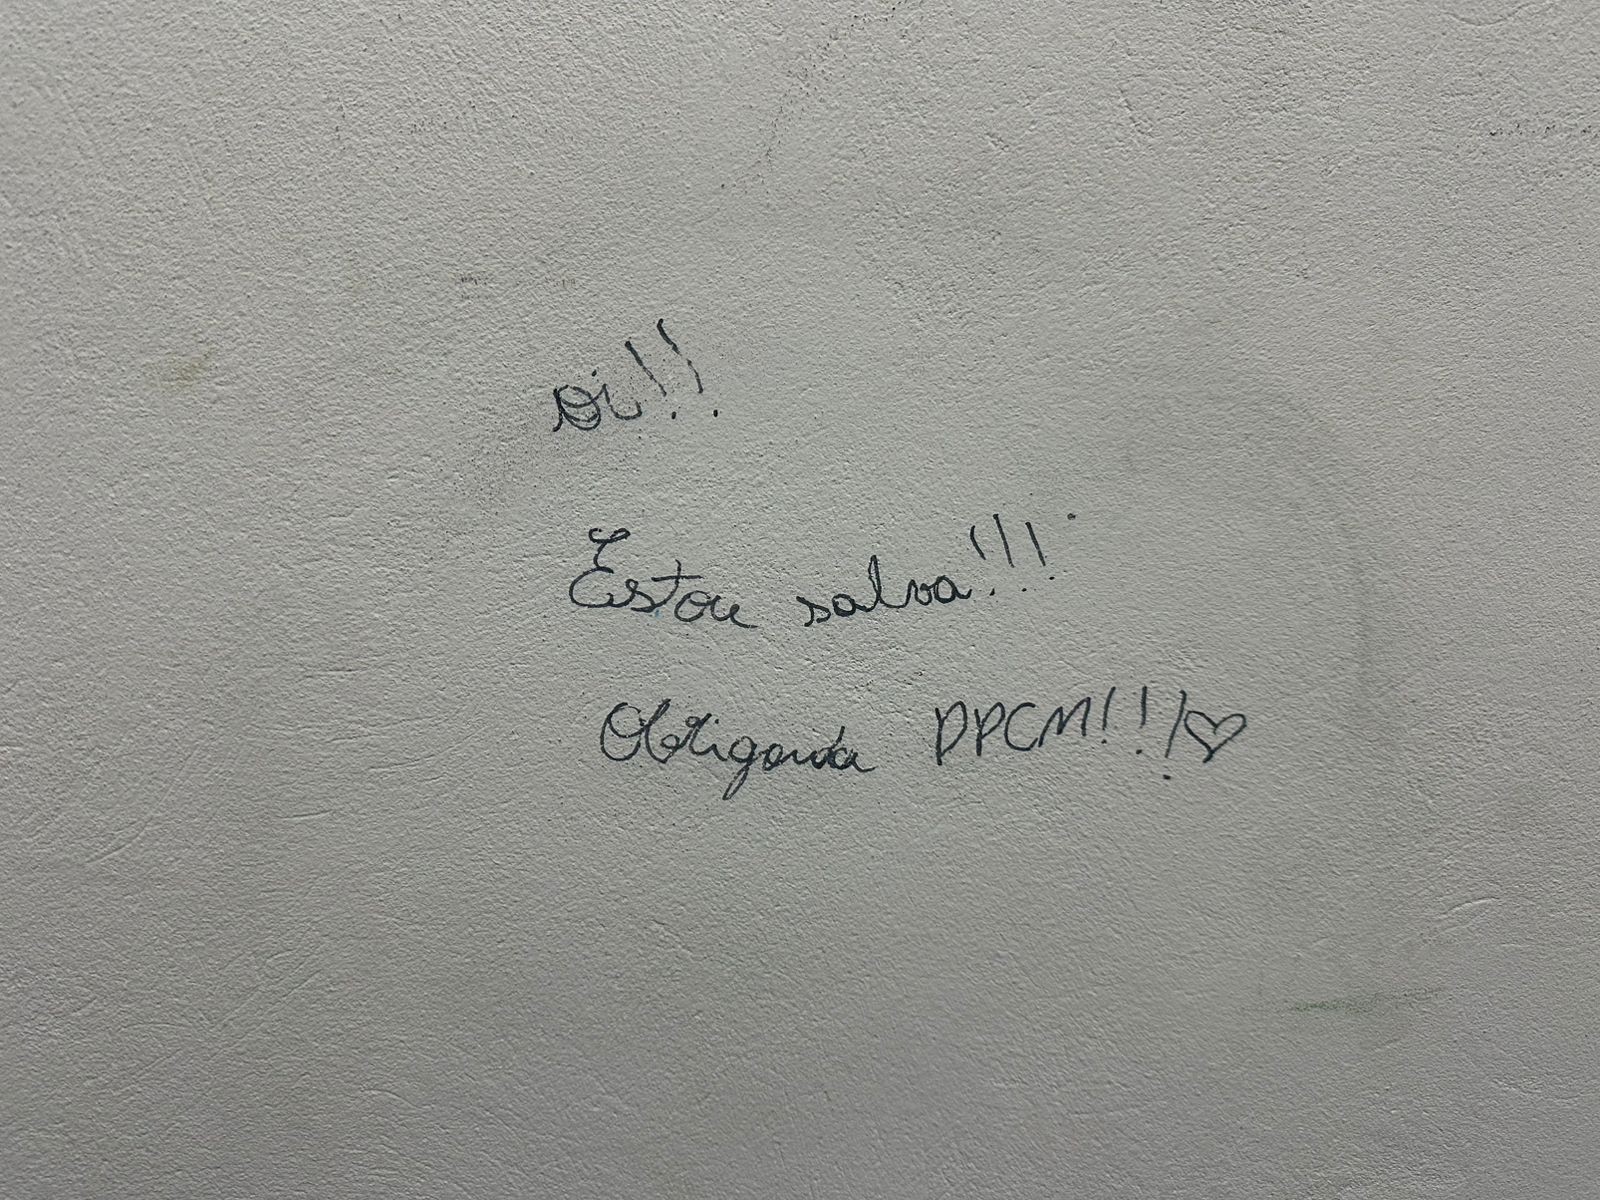 oi!!
Estou salva!!!
Obrigada DPCM!!!♡